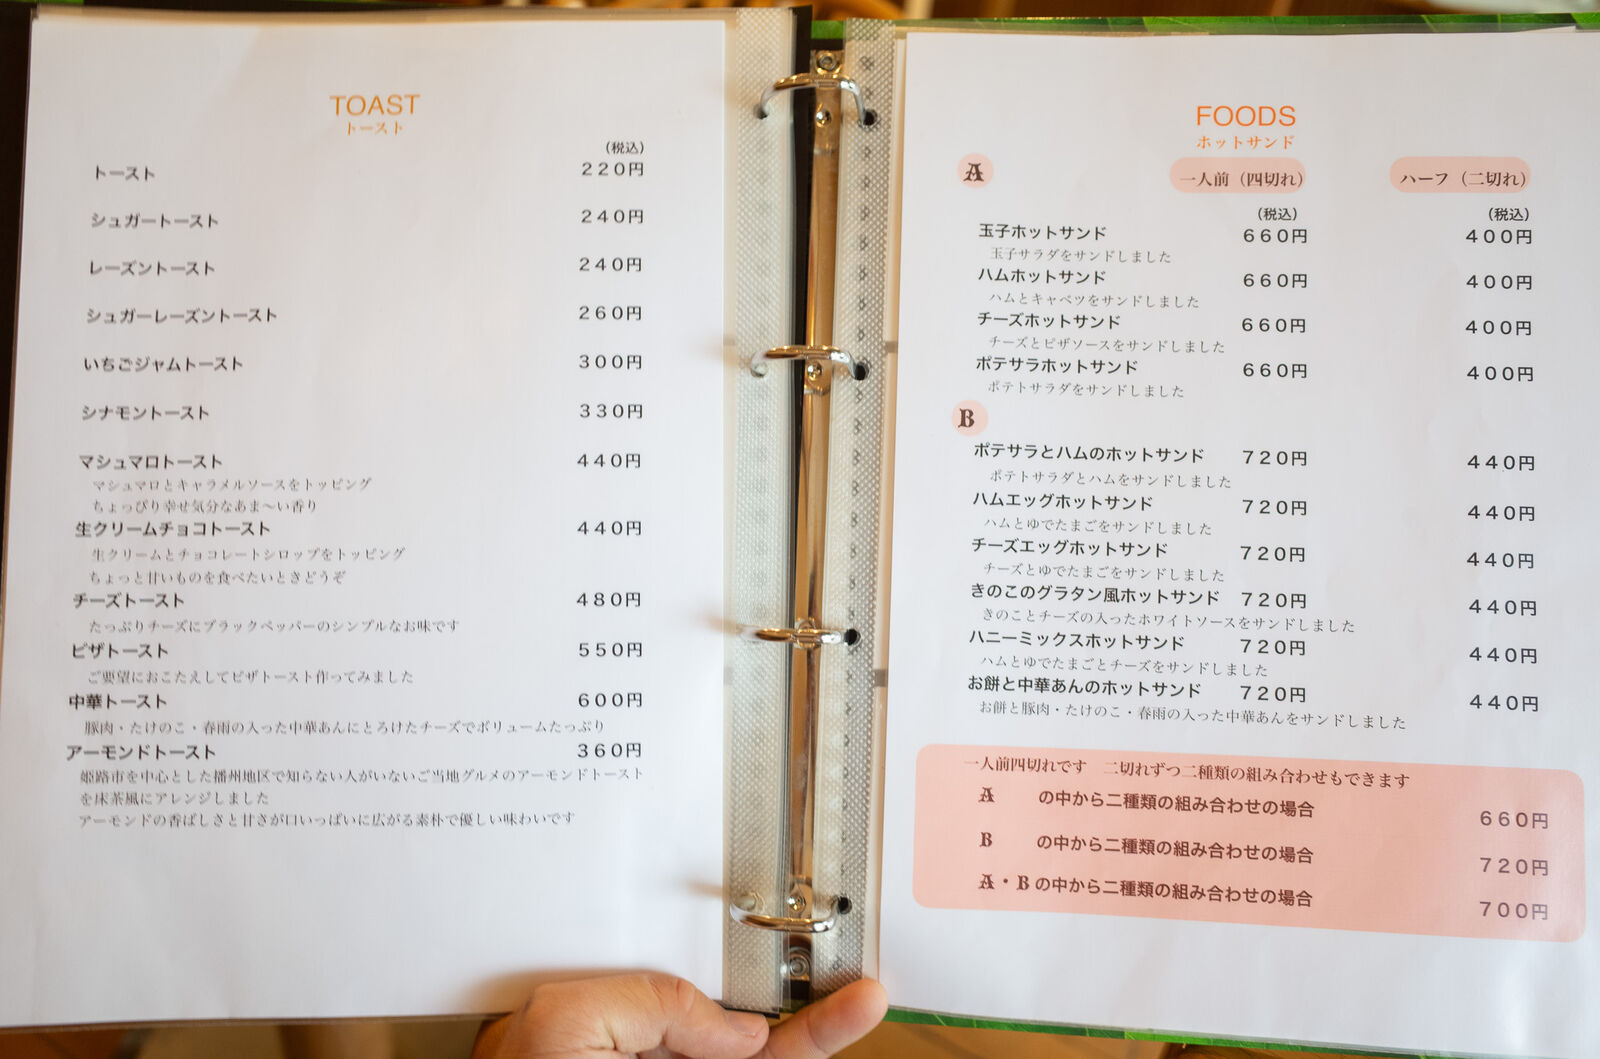 TOAST
トースト
（税込）
トースト 220円
シュガートースト 240円
レーズントースト 240円
シュガーレーズントースト 260円
いちごジャムトースト 300円
シナモントースト 330円
マシュマロトースト 440円
マシュマロとキャラメルソースをトッピング
ちょっぴり幸せ気分なあま〜い香り
生クリームチョコトースト 440円
生クリームとチョコレートシロップをトッピング
ちょっと甘いものを食べたいときどうぞ
チーズトースト 480円
たっぷりチーズにブラックペッパーのシンプルなお味です
ピザトースト 550円
ご要望におこたえしてピザトースト作ってみました
中華トースト 600円
豚肉・たけのこ・春雨の入った中華あんにとろけたチーズでボリュームたっぷり
アーモンドトースト 360円
姫路市を中心とした播州地区で知らない人がいないご当地グルメのアーモンドトースト
を床茶風にアレンジしました
アーモンドの香ばしさと甘さが口いっぱいに広がる素朴で優しい味わいです
FOODS
ホットサンド
A 一人前（四切れ） ハーフ（二切れ）
（税込） （税込）
玉子ホットサンド 660円 400円
玉子サラダをサンドしました
ハムホットサンド 660円 400円
ハムとキャベツをサンドしました
チーズホットサンド 660円 400円
チーズとピザソースをサンドしました
ポテサラホットサンド 660円 400円
ポテトサラダをサンドしました
B
ポテサラとハムのホットサンド 720円 440円
ポテトサラダとハムをサンドしました
ハムエッグホットサンド 720円 440円
ハムとゆでたまごをサンドしました
チーズエッグホットサンド 720円 440円
チーズとゆでたまごをサンドしました
きのこのグラタン風ホットサンド 720円 440円
きのことチーズの入ったホワイトソースをサンドしました
ハニーミックスホットサンド 720円 440円
ハムとゆでたまごとチーズをサンドしました
お餅と中華あんのホットサンド 720円 440円
お餅と豚肉・たけのこ・春雨の入った中華あんをサンドしました
一人前四切れです 二切れずつ二種類の組み合わせもできます
A の中から二種類の組み合わせの場合 660円
B の中から二種類の組み合わせの場合 720円
A・Bの中から二種類の組み合わせの場合 700円